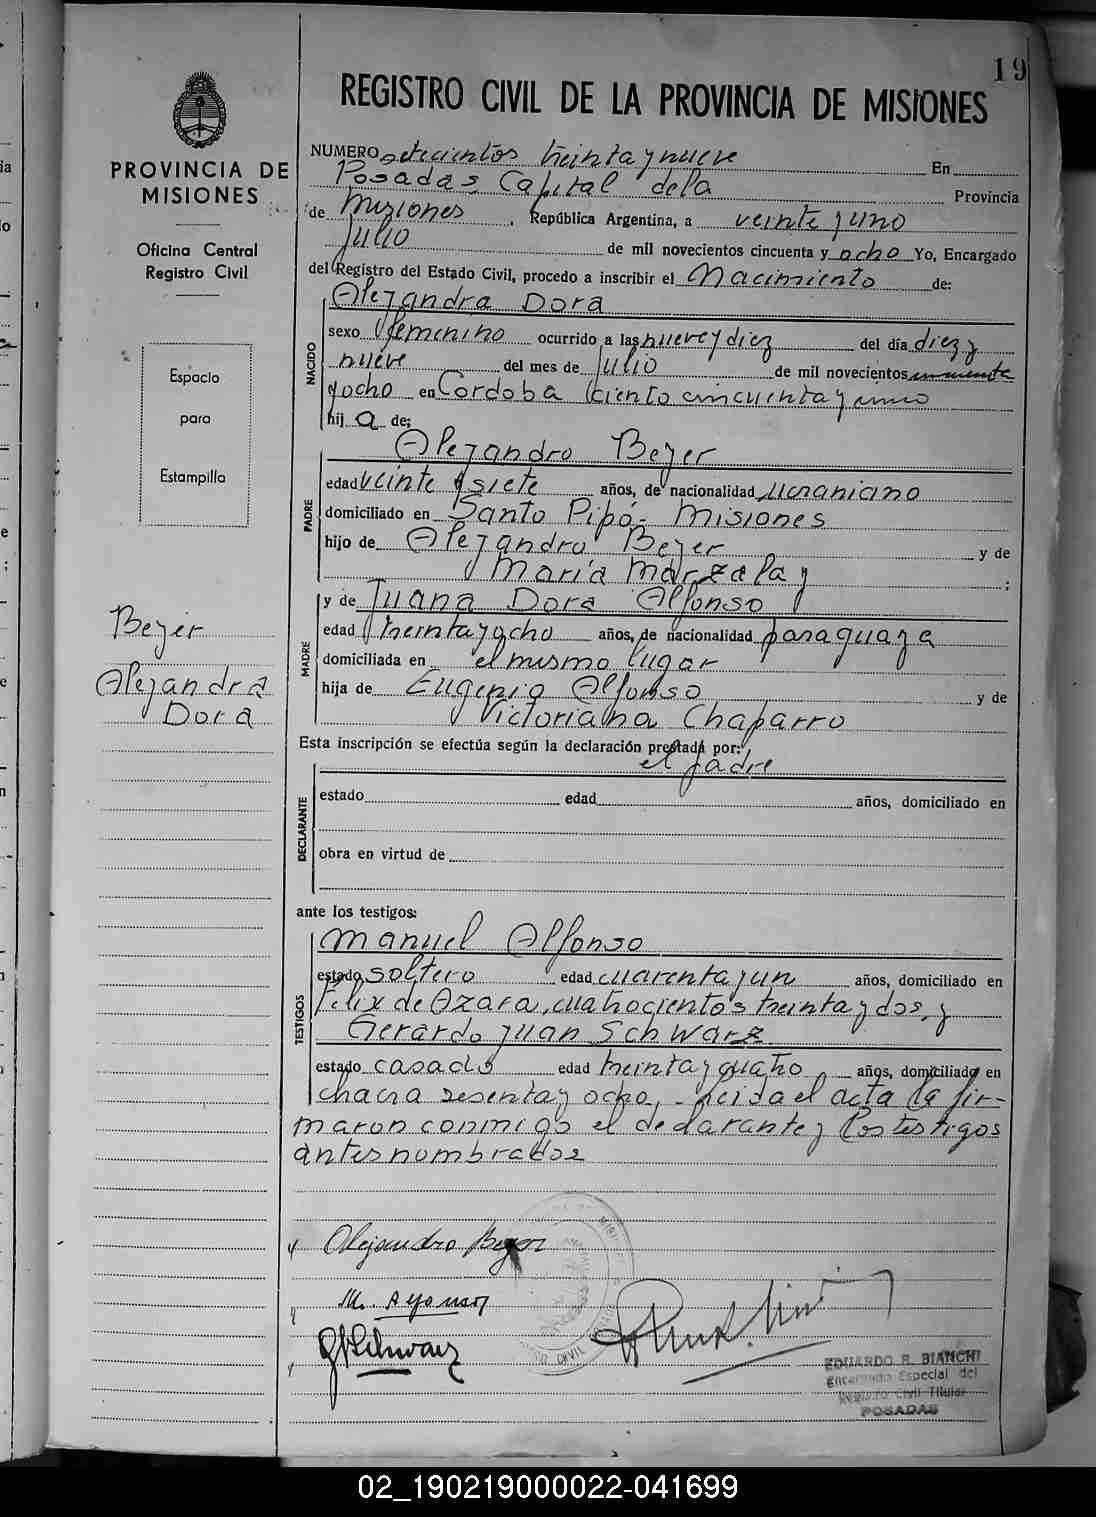 19
REGISTRO CIVIL DE LA PROVINCIA DE MISIONES
PROVINCIA DE
MISIONES
Oficina Central
Registro Civil
Espacio
para
Estampilla
Beyer
Alejandra
Dora
NUMERO setecientos treinta y nueve En
Posadas Capital de la Provincia
de Misiones, República Argentina, a veinte y uno
Julio de mil novecientos cincuenta y ocho Yo, Encargado
del Registro del Estado Civil, procedo a inscribir el Nacimiento de:
Alejandra Dora
NACIDO
sexo femenino ocurrido a las nueve y diez del día diez y
nueve del mes de Julio de mil novecientos cincuenta
y ocho en Cordoba ciento cincuenta y uno
hija de:
Alejandro Beyer
PADRE
edad veinte y siete años, de nacionalidad ucraniano
domiciliado en Santo Pipó - Misiones
hijo de Alejandro Beyer y de
Maria Marzalay ;
y de Juana Dora Alfonso
MADRE
edad treinta y ocho años, de nacionalidad paraguaya
domiciliada en el mismo lugar
hija de Eugenio Alfonso y de
Victoriana Chaparro
Esta inscripción se efectúa según la declaración prestada por:
el padre
DECLARANTE
estado edad años, domiciliado en
obra en virtud de
ante los testigos:
Manuel Alfonso
TESTIGOS
estado soltero edad cuarenta y un años, domiciliado en
Felix de Azara, cuatrocientos treinta y dos, y
Gerardo Juan Schwarz
estado casado edad treinta y cuatro años, domiciliado en
chacra sesenta y ocho, - Leida el acta la fir-
maron conmigo el declarante y los testigos
antes nombrados
Alejandro Beyer
EDUARDO R. BIANCHI
Encargado Especial del
Registro Civil Titular
POSADAS
02_190219000022-041699